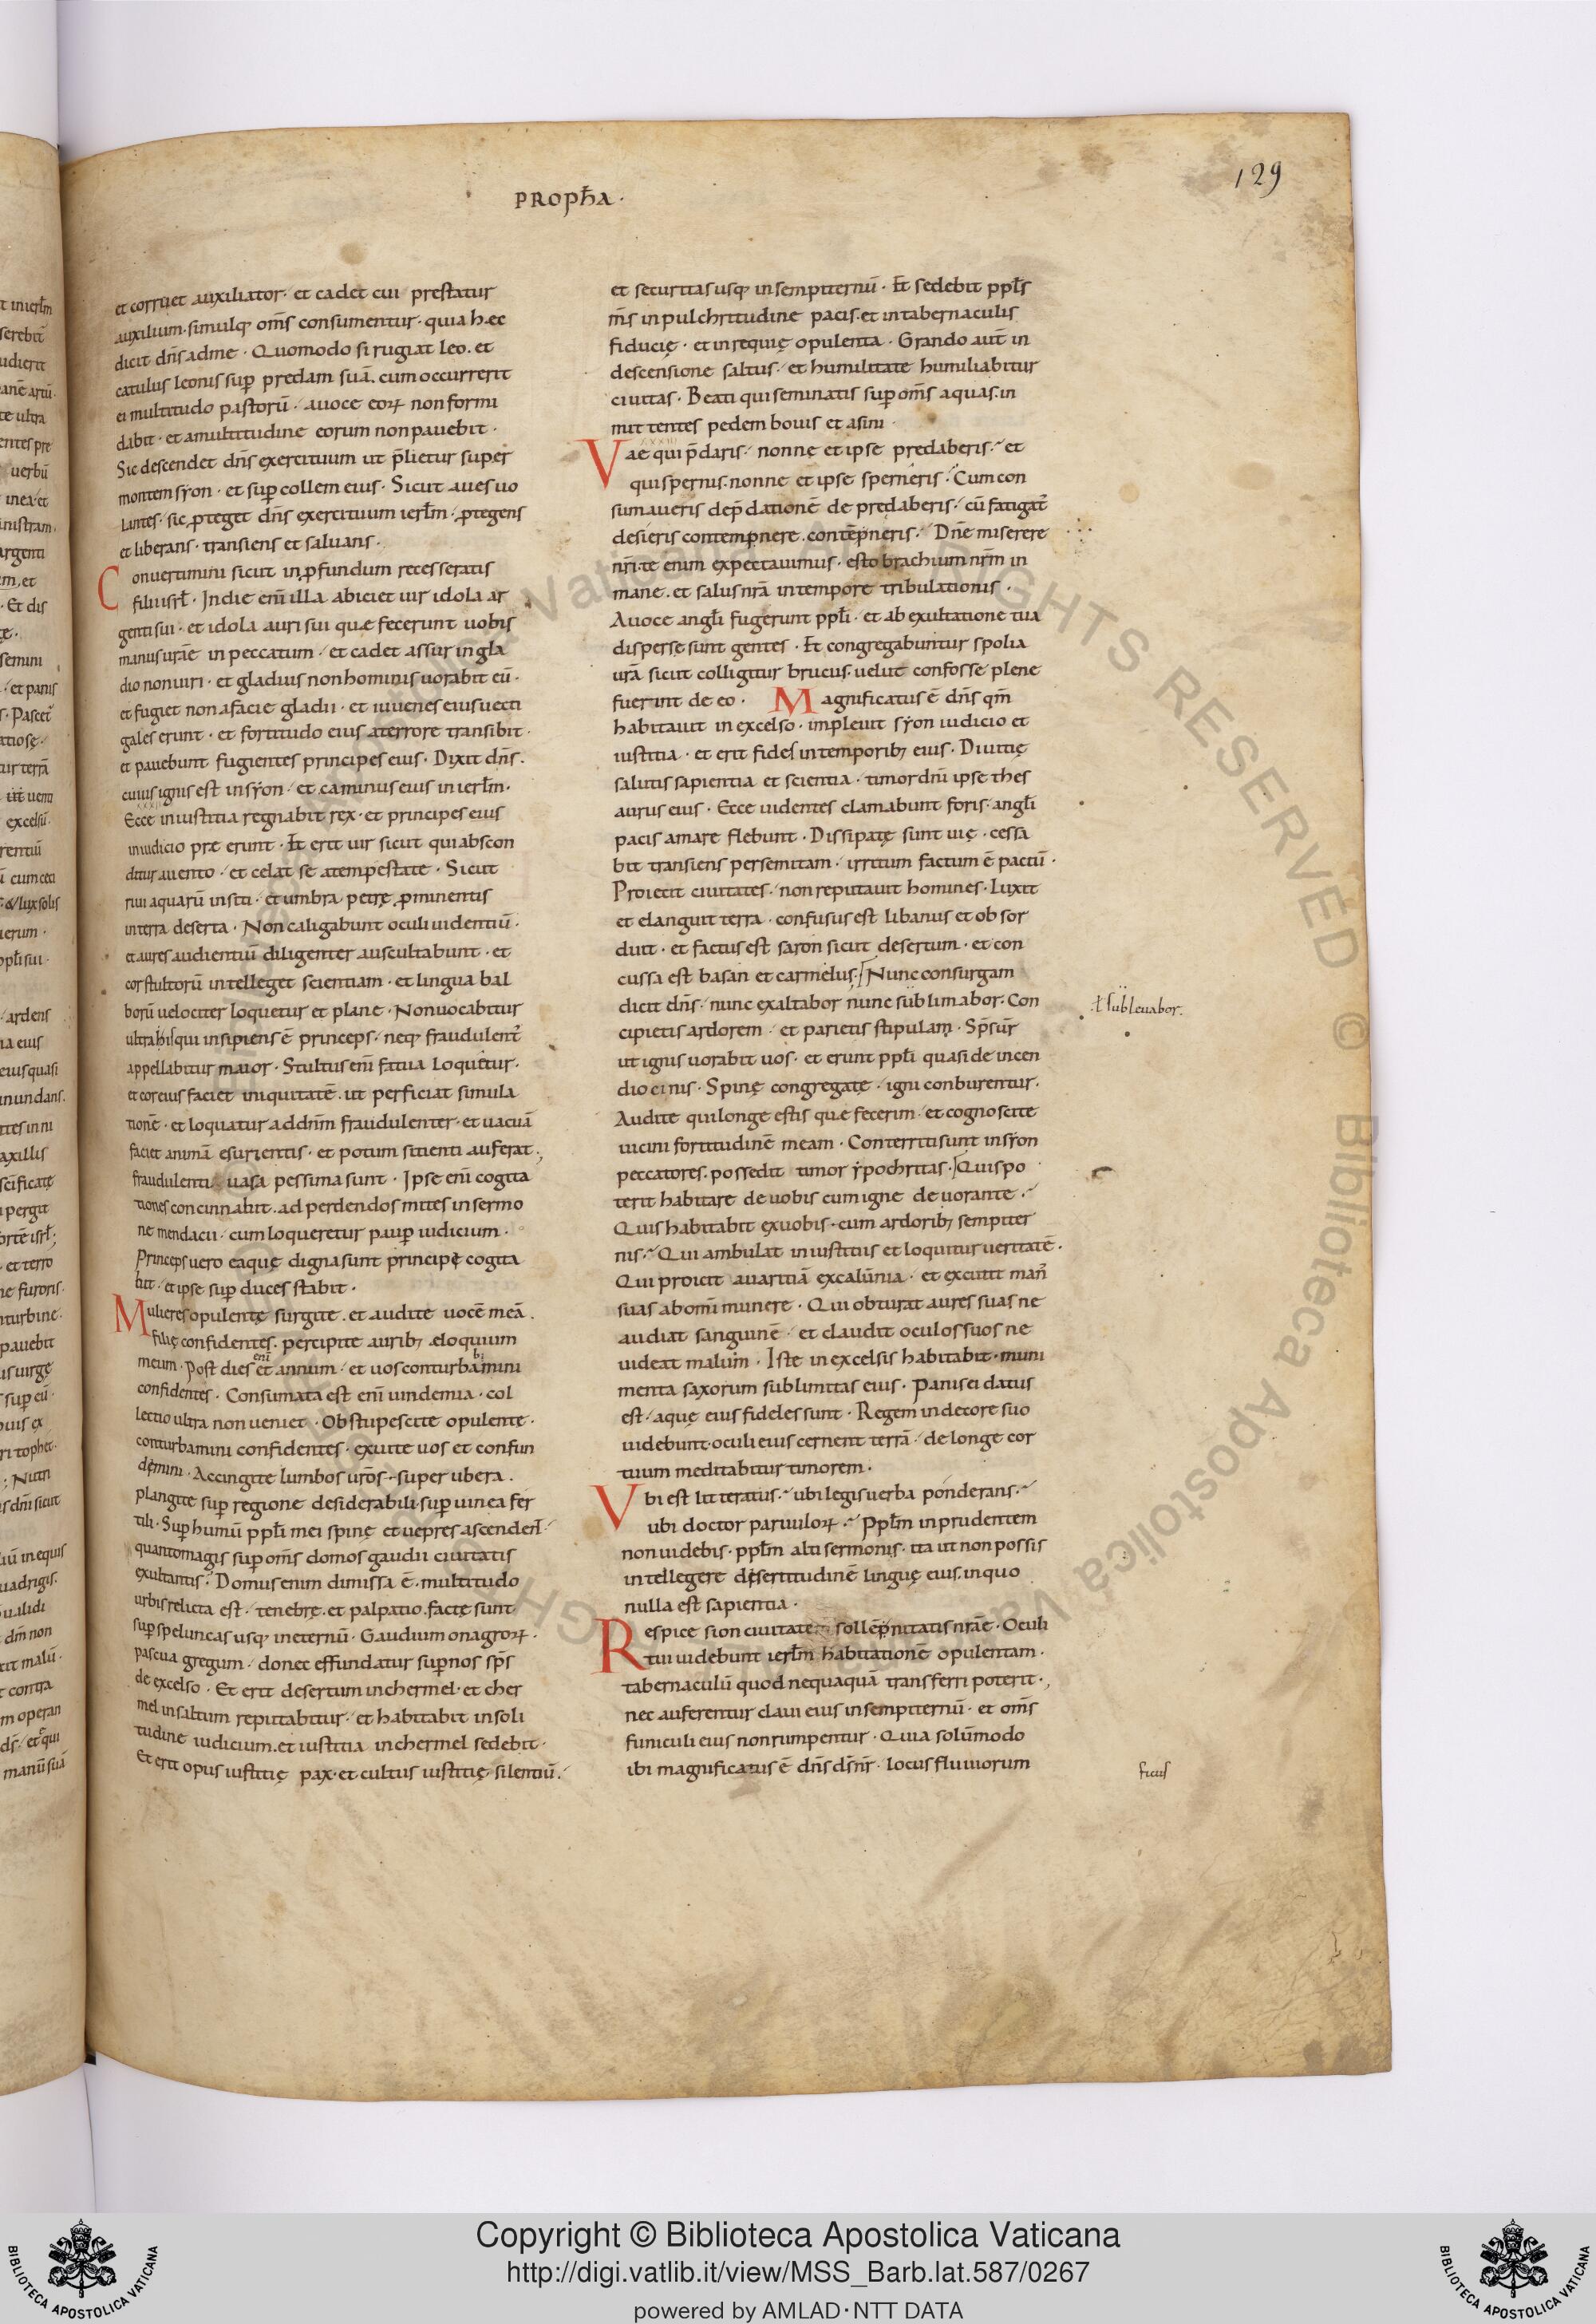 129
PROPHA·
et corruet auxiliator· et cadet cui prestatur
auxilium· simulq; om̄s consumentur· quia hęc
dicit dn̄s ad me· Quomodo si rugiat leo· et
catulus leonis sup̄ predam suā· cum occurrerit
ei multitudo pastorū· auoce eoꝝ non formi
dabit· et amultitudine eorum non pauebit·
Sic descendet dn̄s exercituum ut p̄lietur super
montem syon· et sup̄ collem eius· Sicut aues uo
lantes· sic ꝓteget dn̄s exercituum ierl̄m· ꝓtegens
et liberans· transiens et saluans·
Conuertimini sicut inꝓfundum recesseratis
filii isrl̄· In die eni̅ illa abiciet uir idola ar
genti sui· et idola auri sui quæ fecerunt uobis
manus urǣ in peccatum· et cadet assur in gla
dio non uiri· et gladius non hominis uorabit eū·
et fugiet non afacie gladii· et iuuenes eius uecti
gales erunt· et fortitudo eius aterrore transibit·
et pauebunt fugientes principes eius· Dixit dn̄s·
cuius ignis est in syon· et caminus eius in ierl̄m·
Ecce in iustitia regnabit rex· et principes eius
in iudicio præ erunt· Et erit uir sicut qui abscon
ditur auento· et celat se atempestate· Sicut
riui aquarū in siti· et umbra petrę ꝓminentis
in terra deserta· Non caligabunt oculi uidentiū·
et aures audientiū diligenter auscultabunt· et
cor stultorū intelleget scientiam· et lingua bal
borū uelociter loquetur et plane· Non uocabitur
ultra his qui insipiens ē princeps· neq; fraudulent᷑
appellabitur maior· Stultus eni̅ fatua loquetur·
et cor eius faciet iniquitatē· ut perficiat simula
tionē· et loquatur ad dn̄m fraudulenter· et uacuā
faciet animā esurientis· et potum sitienti auferat·;
fraudulenti uasa pessima sunt· Ipse eni̅ cogita
tiones concinnabit· ad perdendos mites in sermo
ne mendacii· cum loqueretur paup̄ iudicium·
Princeps uero ea quę digna sunt principe cogita
bit· et ipse sup̄ duces stabit·
Mulieres opulentę surgite· et audite uocē meā·
filię confidentes· percipite aurib; eloquium
meum· Post dies eni̅ et annum· et uos conturbabimini
confidentes· Consumata est eni̅ uindemia· col
lectio ultra non ueniet· Obstupescite opulente·
conturbamini confidentes· exuite uos et confun
demini· Accingite lumbos urōs· super ubera·
plangite sup̄ regione desiderabili· sup̄ uinea fer
tili· Sup̄ humū ppl̄i mei spinę et uepres ascendent·
quanto magis sup̄ om̄s domos gaudii ciuitatis
exultantis· Domus enim dimissa ē· multitudo
urbis relicta est· tenebrę· et palpatio· factę sunt
sup̄ speluncas usq; in eternū· Gaudium onagroꝝ·
pascua gregum· donec effundatur sup̄ nos sp̄s
de excelso· Et erit desertum in chermel· et cher
mel in saltum reputabitur· et habitabit in soli
tudine iudicium· et iustitia in chermel sedebit·
Et erit opus iustitię pax· et cultus iustitię silentiū·
et securitas usq; in sempiternū· Et sedebit ppl̄s
m̄s in pulchritudine pacis· et in tabernaculis
fiducię· et in requię opulenta· Grando aut̄ in
descensione saltus· et humilitate humiliabitur
ciuitas· Beati qui seminatis sup̄ om̄s aquas· in
mittentes pedem bouis et asini·
Vae qui p̄daris· nonne et ipse predaberis· et
qui spernis· nonne et ipse sperneris· Cum con
sumaueris dep̄dationē de predaberis· cū fatigat᷑
desieris contempnere· contēpneris· Dn̄e miserere
nr̄i· te enim expectauimus· esto brachium nr̄m in
mane· et salus nrā in tempore tribulationis·
Auoce angl̄i fugerunt ppl̄i· et ab exultatione tua
dispersę sunt gentes· Et congregabuntur spolia
urā sicut colligitur brucus· uelut confossę plene
fuerint de eo· Magnificatus ē dn̄s qm̄
habitauit in excelso· impleuit syon iudicio et
iustitia· et erit fides in temporib; eius· Diuitię
salutis sapientia et scientia· timor dn̄i ipse thes
aurus eius· Ecce uidentes clamabunt foris· angl̄i
pacis amare flebunt· Dissipatę sunt uię· cessa
bit transiens per semitam· irritum factum ē pactū·
Proiecit ciuitates· non reputauit homines· Luxit
et elanguit terra· confusus est libanus et obsor
duit· et factus est saron sicut desertum· et con
cussa est basan et carmelus· Nunc consurgam
dicit dn̄s· nunc exaltabor nunc sublimabor· Con
cipietis ardorem· et parietis stipulam· Sp̄s ur̄
ut ignis uorabit uos· et erunt ppl̄i quasi de incen
dio cinis· Spinę congregatę· igni conburentur·
Audite qui longe estis quæ fecerim· et cognoscite
uicini fortitudinē meam· Conterriti sunt in syon
peccatores· possedit timor ypochritas· Quis po
terit habitare de uobis cum igne deuorante·
Quis habitabit ex uobis· cum ardorib; sempiter
nis· Qui ambulat in iustitiis et loquitur ueritatē·
Qui proicit auaritiā ex calūnia· et excutit man᷑
suas ab omi̅ munere· Qui obturat aures suas ne
audiat sanguinē· et claudit oculos suos ne
uideat malum· Iste in excelsis habitabit· muni
menta saxorum sublimitas eius· Panis ei datus
est· aquę eius fideles sunt· Regem in decore suo
uidebunt· oculi eius cernent terrā· de longe cor
tuum meditabitur timorem·
Vbi est litteratus· ubi legis uerba ponderans·
ubi doctor paruuloꝝ· Ppl̄m inprudentem
non uidebis· ppl̄m alti sermonis· ita ut non possis
intellegere desertitudinē linguę eius· in quo
nulla est sapientia·
Respice sion ciuitatem sollēpnitatis nrǣ· Oculi
tui uidebunt ierl̄m habitationē opulentam·
tabernaculū quod nequaquā transferri poterit·;
nec auferentur claui eius in sempiternū· et om̄s
funiculi eius non rumpentur· Quia solūmodo
ibi magnificatus ē dn̄s ds̄ nr̄· locus fluuiorum
ł subleuabor·
ficus
Copyright © Biblioteca Apostolica Vaticana
http://digi.vatlib.it/view/MSS_Barb.lat.587/0267
powered by AMLAD·NTT DATA
BIBLIOTECA APOSTOLICA VATICANA
BIBLIOTECA APOSTOLICA VATICANA